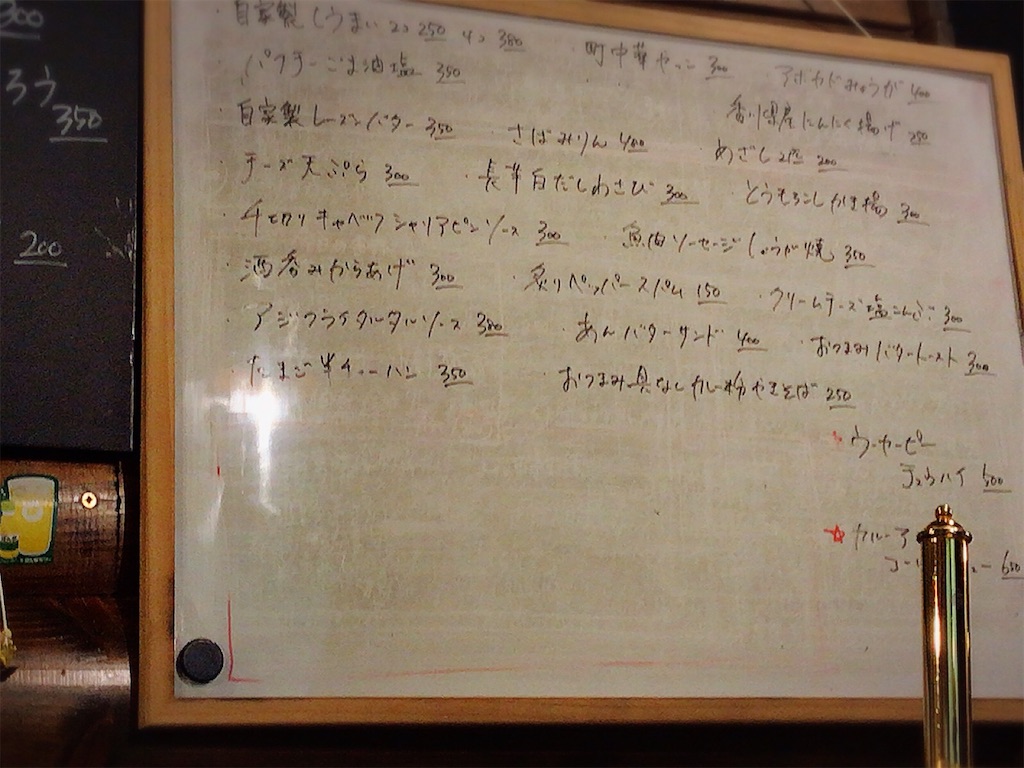 300
ろう
350
200
・自家製しうまい 2コ 250 4コ 380
・パクチーごま油塩 350
・町中華やっこ 300
・アボカドみょうが 400
・自家製レーズンバター 350
・さばみりん 400
香川県産にんにく揚げ 250
・チーズ天ぷら 300
・長芋白だしわさび 300
めざし2匹 200
・とうもろこしかき揚 300
・千切りキャベツシャリアピンソース 300
・魚肉ソーセージしょうが焼 350
・酒呑みからあげ 300
・炙りペッパースパム 150
・クリームチーズ塩こんぶ 300
・アジフライタルタルソース 380
・あんバターサンド 400
・おつまみバタートースト 300
・たまご半チャーハン 350
・おつまみ具なしカレー粉やきそば 250
ウーヤーピー
チュウハイ 500
☆カルーア
コー ー 650